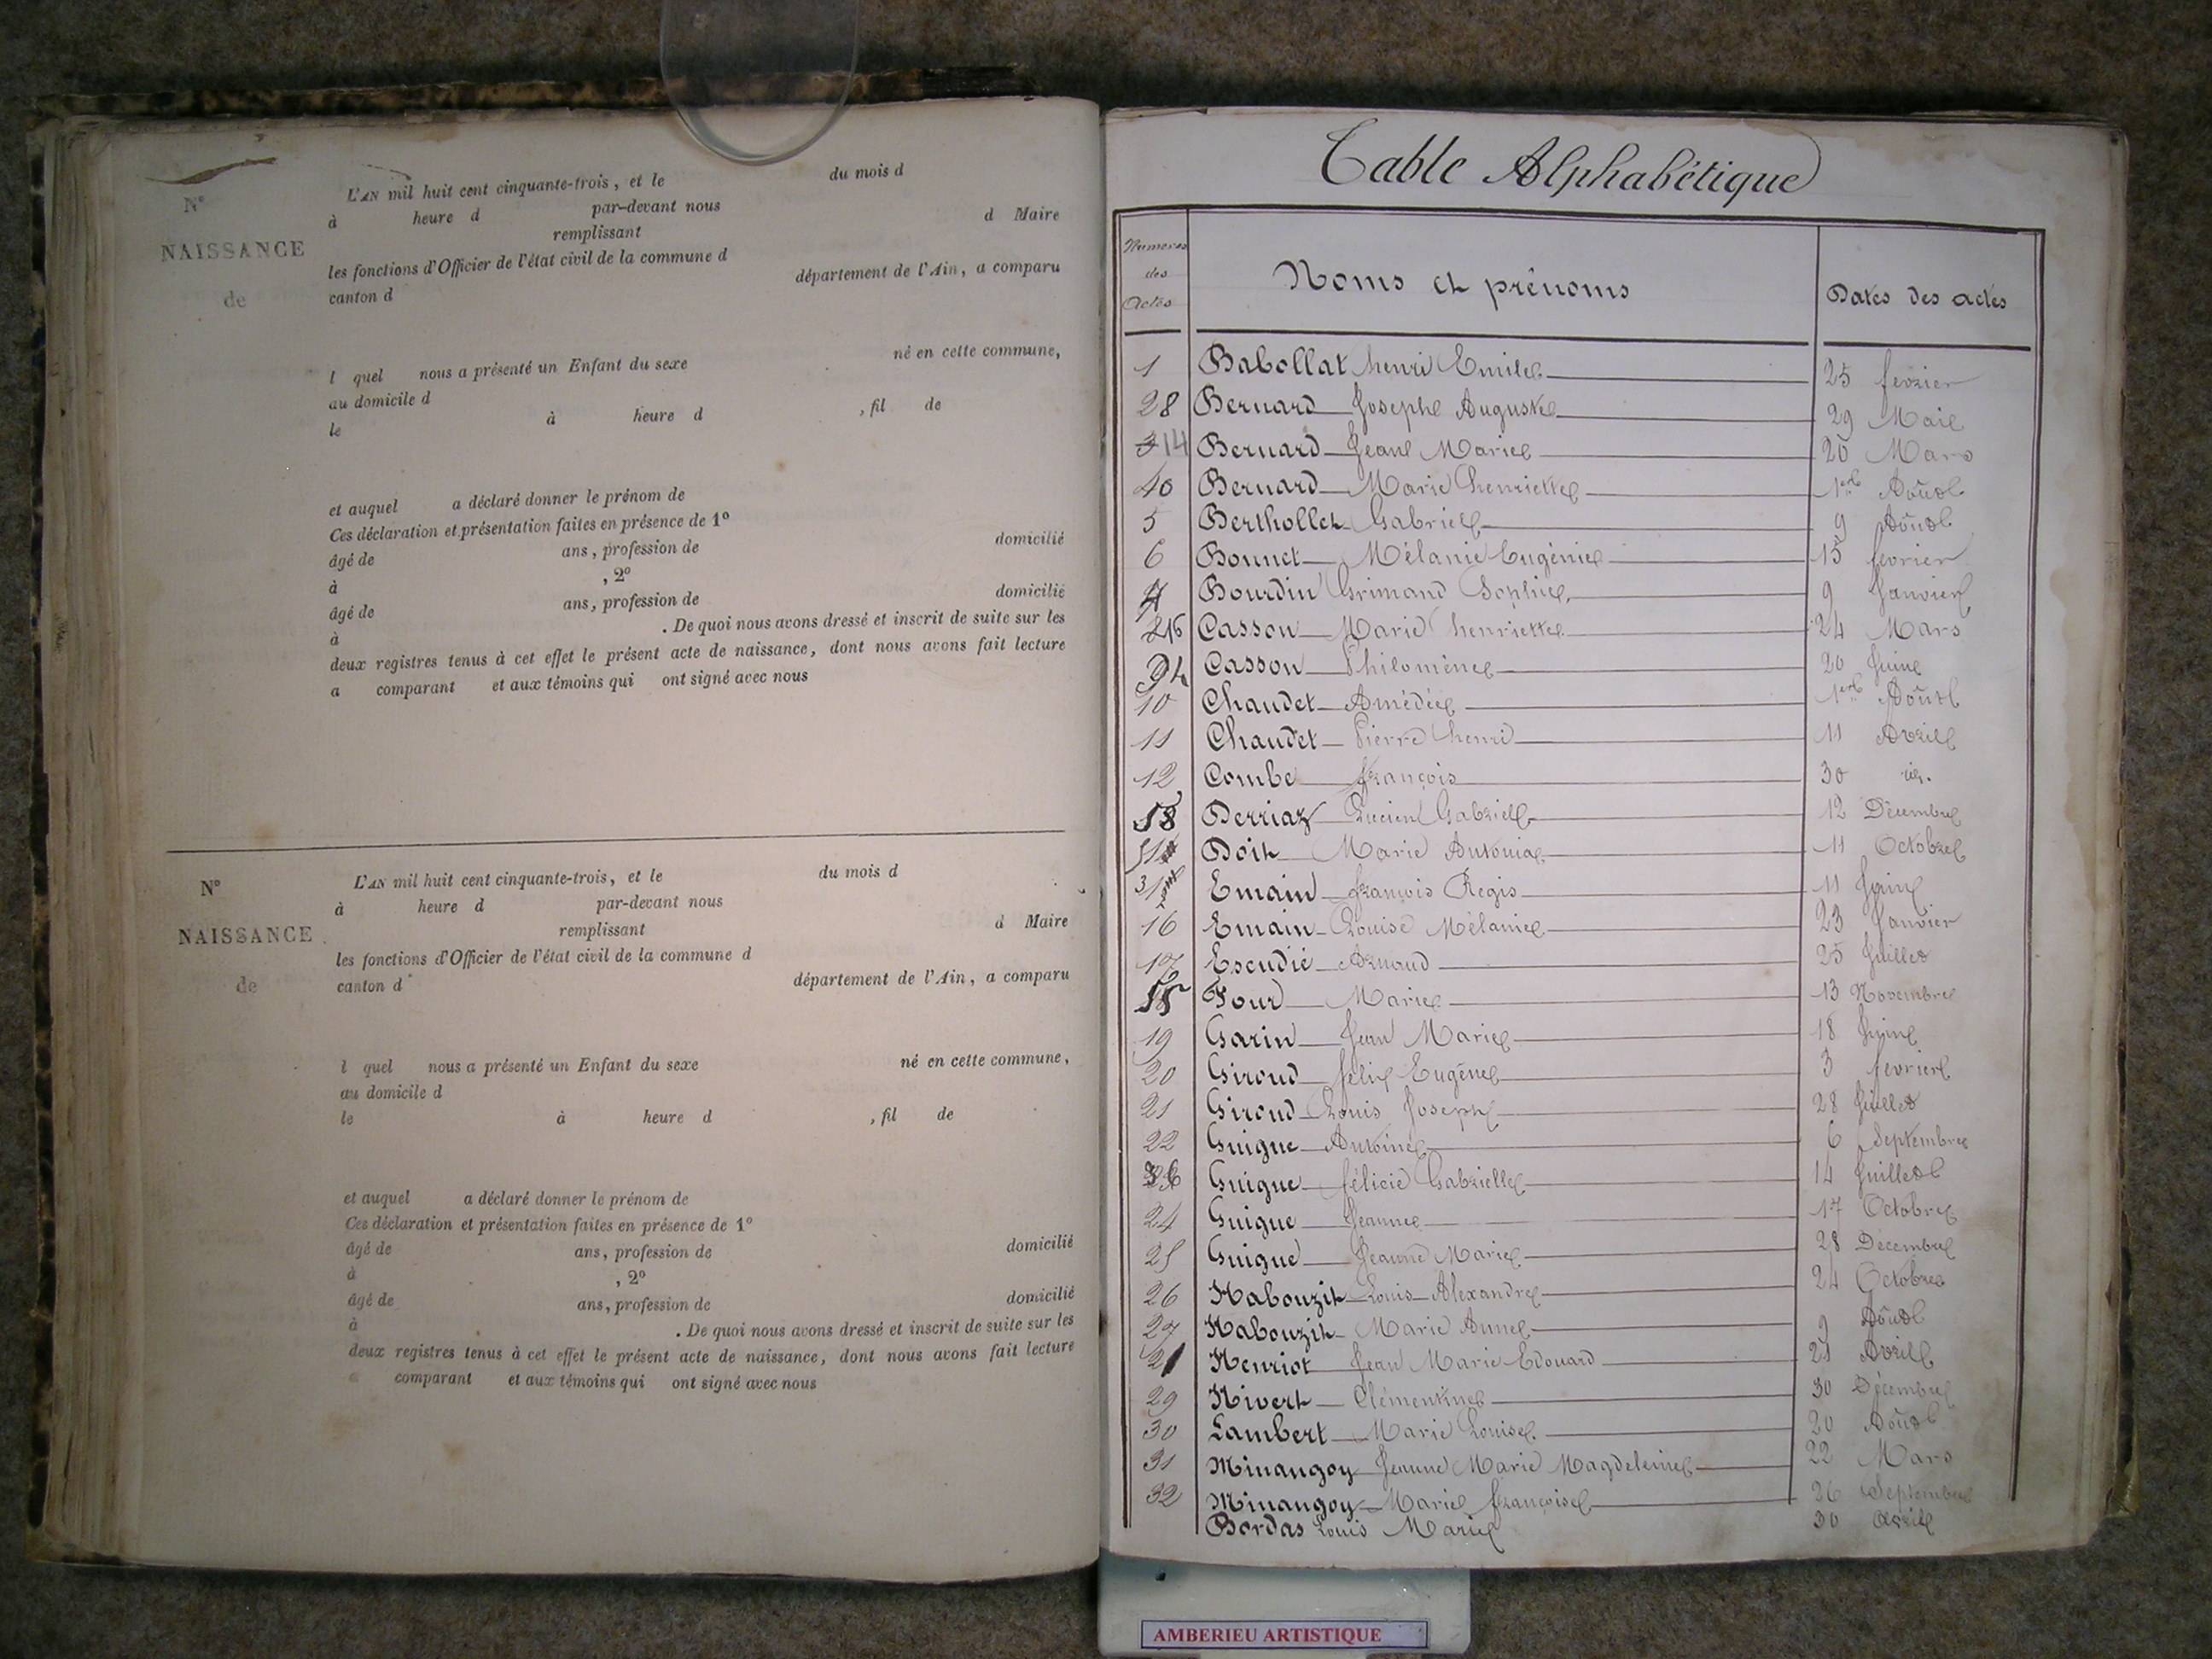 N°
NAISSANCE
de
L'AN mil huit cent cinquante-trois, et le du mois d
à heure d par-devant nous
remplissant d Maire
les fonctions d'Officier de l'état civil de la commune d
canton d département de l'Ain, a comparu
né en cette commune,
l quel nous a présenté un Enfant du sexe
au domicile d
le à heure d , fil de
et auquel a déclaré donner le prénom de
Ces déclaration et présentation faites en présence de 1°
âgé de ans, profession de domicilié
à , 2°
âgé de ans, profession de domicilié
à . De quoi nous avons dressé et inscrit de suite sur les
deux registres tenus à cet effet le présent acte de naissance, dont nous avons fait lecture
a comparant et aux témoins qui ont signé avec nous
N°
NAISSANCE
de
L'AN mil huit cent cinquante-trois, et le du mois d
à heure d par-devant nous
remplissant d Maire
les fonctions d'Officier de l'état civil de la commune d
canton d département de l'Ain, a comparu
né en cette commune,
l quel nous a présenté un Enfant du sexe
au domicile d
le à heure d , fil de
et auquel a déclaré donner le prénom de
Ces déclaration et présentation faites en présence de 1°
âgé de ans, profession de domicilié
à , 2°
âgé de ans, profession de domicilié
à . De quoi nous avons dressé et inscrit de suite sur les
deux registres tenus à cet effet le présent acte de naissance, dont nous avons fait lecture
comparant et aux témoins qui ont signé avec nous
Table Alphabétique
Numeros des Actes Noms et prénoms Dates des actes
1 Babollat henri Emile 25 fevrier
28 Bernard Joseph Auguste 29 Mai
14 Bernard Jean Marie 20 Mars
40 Bernard Marie henriette 1er Août
5 Berthollet Gabriel 9 Août
6 Bonnet Mélanie Eugénie 15 fevrier
Bourdin Grimand Sophie 9 Janvier
16 Casson Marie henriette 24 Mars
Casson Philomène 20 Juin
10 Chaudet Amédée 1er Août
11 Chaudet Pierre henri 11 Avril
12 Combe françois 30 id.
Derriaz Lucien Gabriel 12 Décembre
Doit Marie Antonia 11 Octobre
Emain françois Régis 11 Juin
16 Emain Louise Mélanie 23 Janvier
17 Escudié Arnaud 25 Juillet
Four Marie 13 Novembre
19 Garin Jean Marie 18 Juin
20 Giroud félix Eugène 3 fevrier
21 Giroud Louis Joseph 28 Juillet
22 Guigue Antoine 6 Septembre
Guigue félicie Gabrielle 14 Juillet
24 Guigue Jeanne 17 Octobre
25 Guigue Jeanne Marie 28 Decembre
26 Habouzit Louis Alexandre 24 Octobre
27 Habouzit Marie Anne 9 Août
21 Henriot Jean Marie Edouard 21 Avril
29 Hivert Clémentine 30 Décembre
30 Lambert Marie Louise 20 Août
31 Minangoy Jeanne Marie Magdeleine 22 Mars
32 Minangoy Marie françoise 26 Septembre
Bordas Louis Marie 30 avril
AMBERIEU ARTISTIQUE